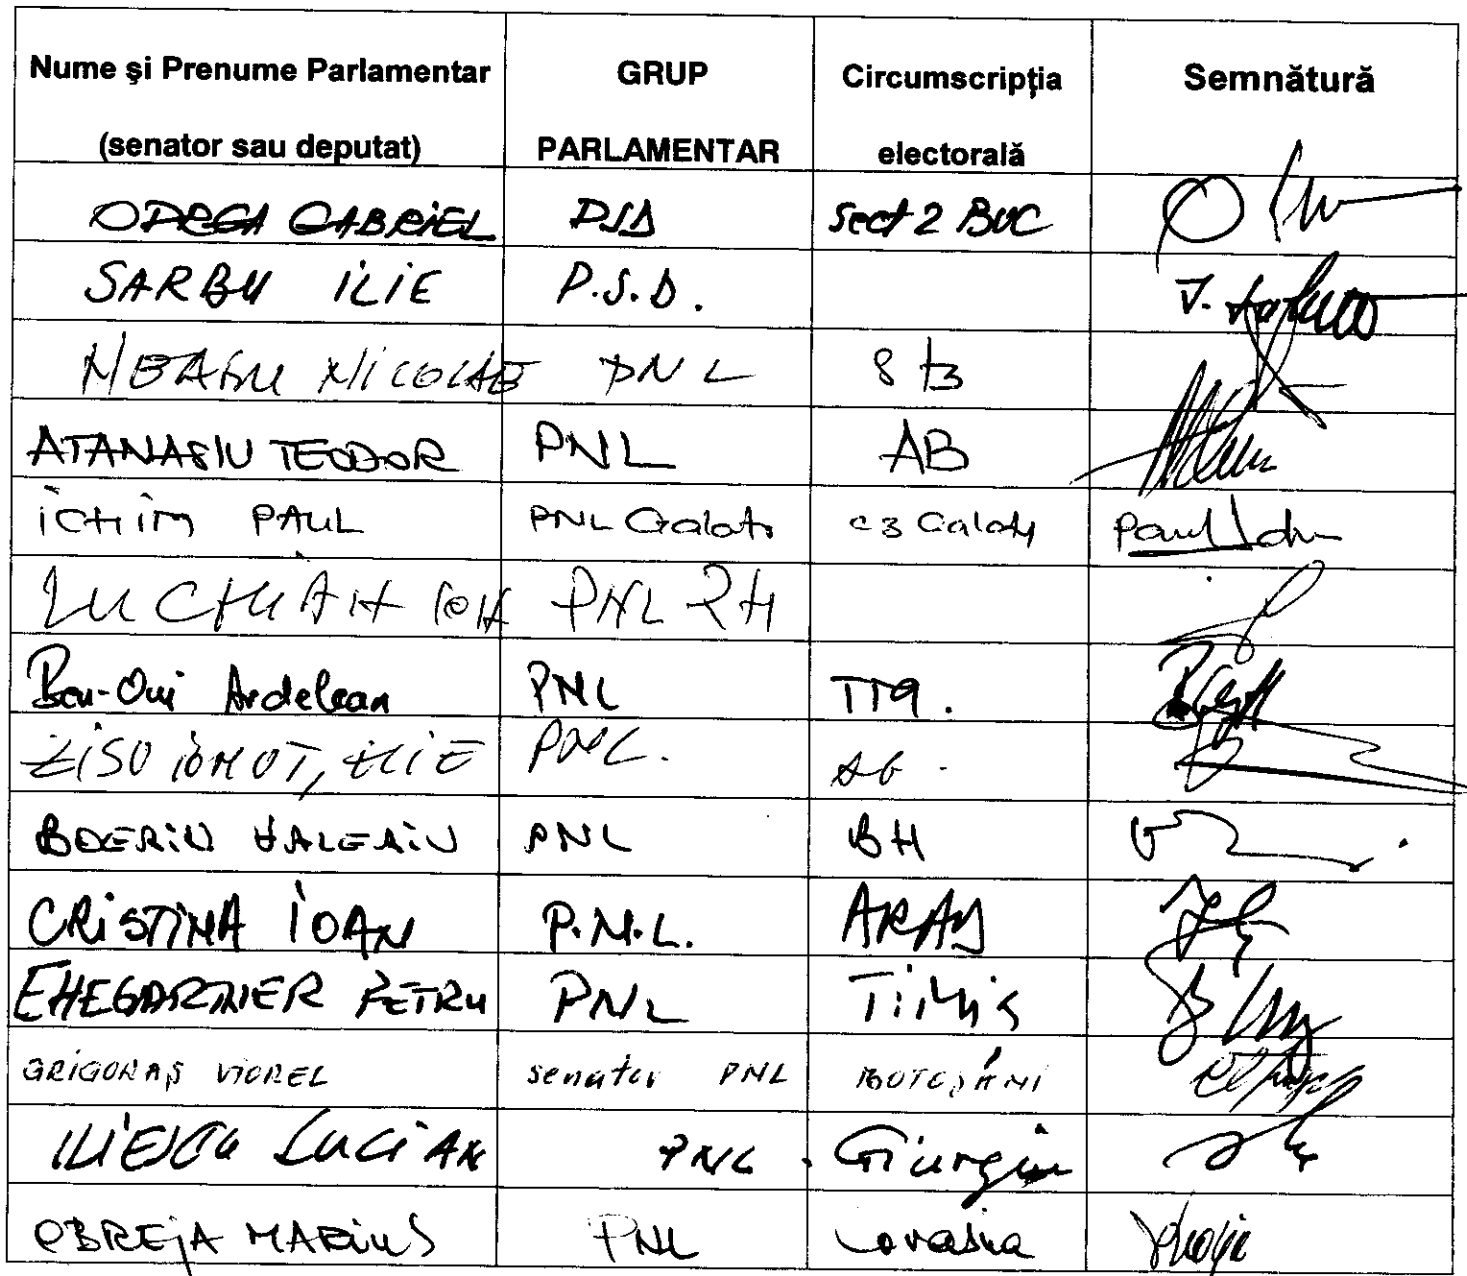 Nume şi Prenume Parlamentar (senator sau deputat) GRUP PARLAMENTAR Circumscripţia electorală Semnătură
OPREA GABRIEL PSD Sect 2 BUC
SARBU ILIE P.S.D.
NEAGU NICOLAE PNL
ATANASIU TEODOR PNL AB
ICHIM PAUL PNL Galati Galati Paul
ION PNL
Ben-Oni Ardelean PNL
PNL.
BOERIU VALERIU PNL BH
CRISTINA IOAN P.N.L. ARAD
EHEGARTNER PETRU PNL Timiş
GRIGORAŞ VIOREL senator PNL BOTOŞANI
ILIESCU LUCIAN PNL Giurgiu
OBREJA MARIUS PNL Covasna